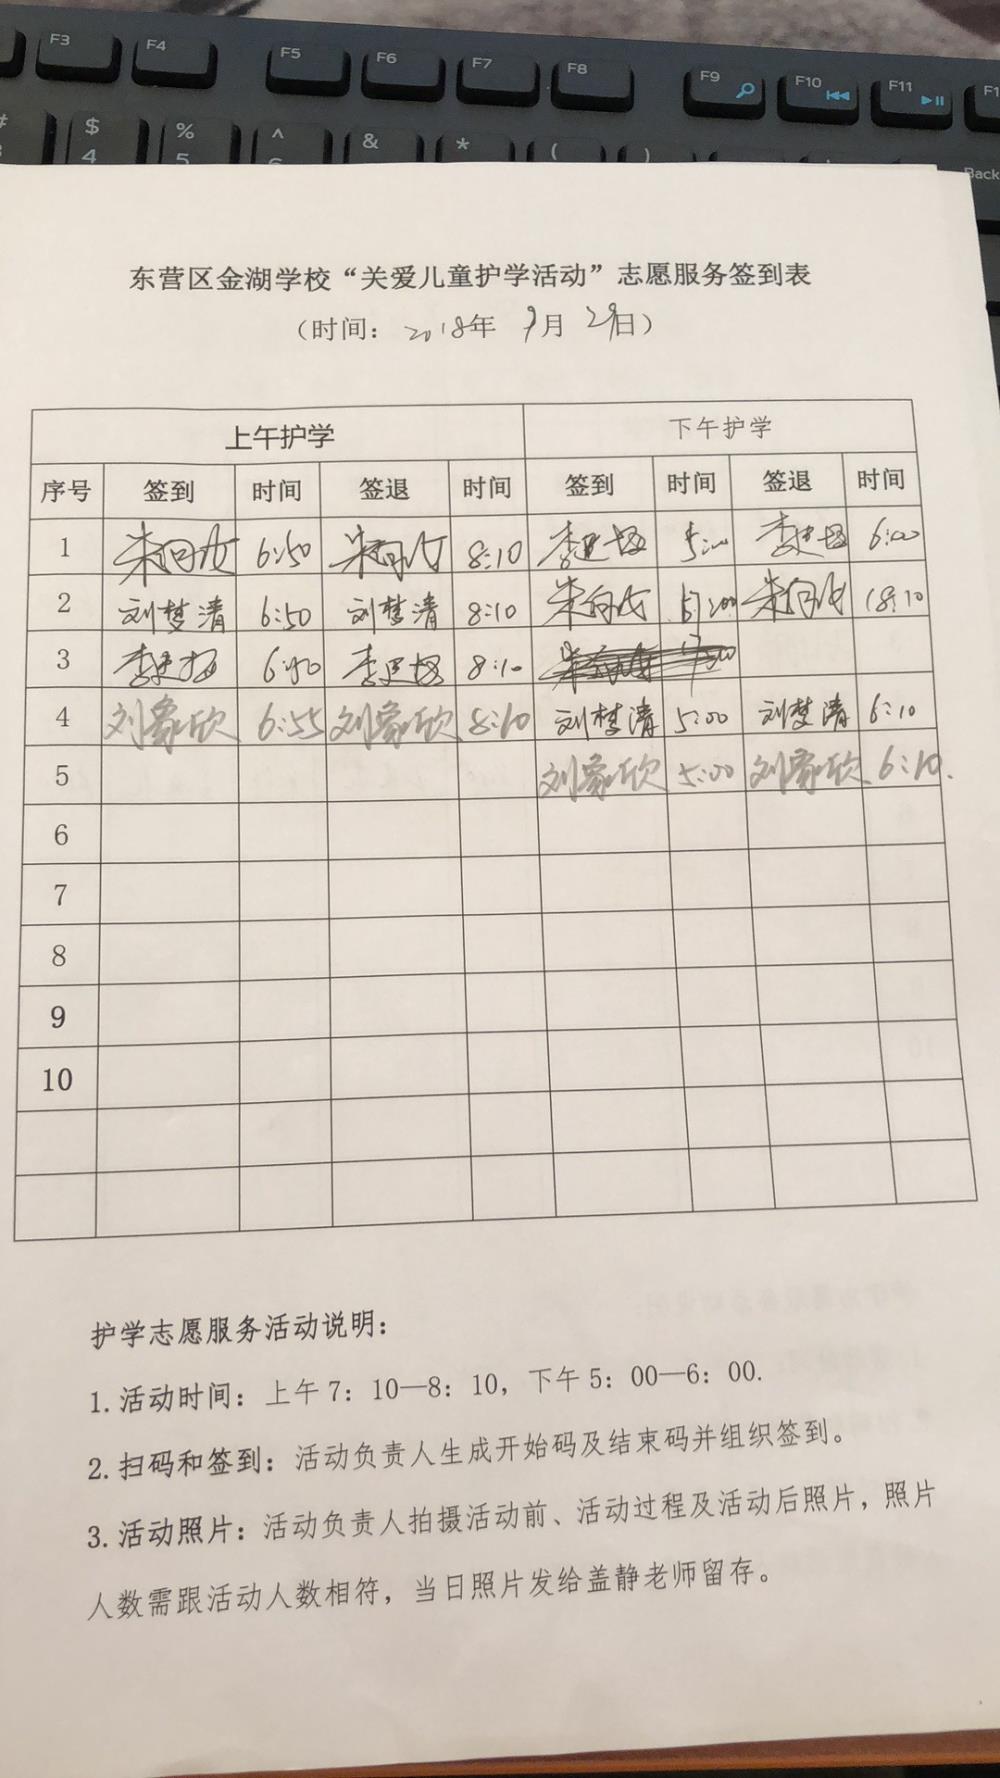 F3 F4 F5 F6 F7 F8 F9 F10 F11 F1
# $ % ^ & * ( )
4 5 6 Back
东营区金湖学校“关爱儿童护学活动”志愿服务签到表
（时间：2018年 9月 29日）
上午护学 下午护学
序号 签到 时间 签退 时间 签到 时间 签退 时间
1 6:50 8:10 5:00 6:00
2 刘梦清 6:50 刘梦清 8:10 18:10
3 6:40 8:10
4 刘家欣 6:55 刘家欣 8:10 刘梦清 5:00 刘梦清 6:10
5 刘家欣 5:00 刘家欣 6:10.
6
7
8
9
10
护学志愿服务活动说明：
1.活动时间：上午7：10—8：10，下午5：00—6：00.
2.扫码和签到：活动负责人生成开始码及结束码并组织签到。
3.活动照片：活动负责人拍摄活动前、活动过程及活动后照片，照片
人数需跟活动人数相符，当日照片发给盖静老师留存。